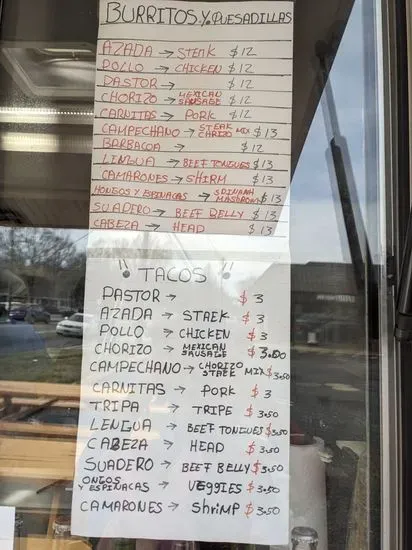 BURRITOS.Y.QUESADILLAS
AZADA → STEAK $12
POLLO → CHICKEN $12
PASTOR → $12
CHORIZO → MEXICAN SAUSAGE $12
CARNITAS → PORK $12
CAMPECHANO → STEAK CHRIZO MIX $13
BARBACOA → $12
LINGUA → BEEF TONGUES $13
CAMARONES → SHIRM $13
HONGOS Y ESPINACAS → SPINASH MASBROOM $13
SUADERO → BEEF BELLY $13
CABEZA → HEAD $13
!! TACOS !!
PASTOR → $3
AZADA → STAEK $3
POLLO → CHICKEN $3
CHORIZO → MEXICAN SAUSAGE $3.50
CAMPECHANO → CHORIZO STAEK MIX $3.50
CARNITAS → PORK $3
TRIPA → TRIPE $3.50
LENGUA → BEEF TONGUES $3.50
CABEZA → HEAD $3.50
SUADERO → BEEF BELLY $3.50
ONGOS Y ESPINACAS → VEGGIES $3.50
CAMARONES → ShRIMP $3.50